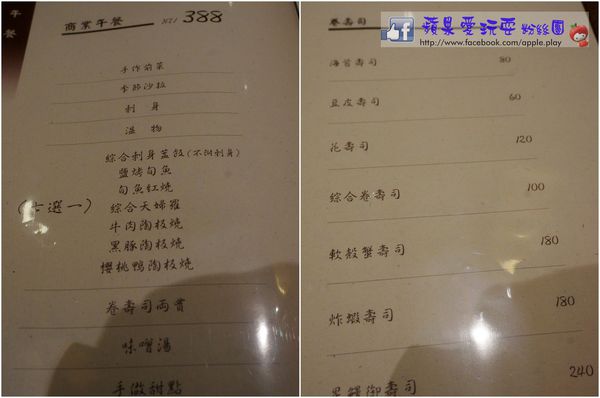 午
餐
商業午餐 NT/ 388
手作前菜
季節沙拉
刺身
溫物
綜合刺身蓋飯(不附刺身)
鹽烤旬魚
旬魚紅燒
(七選一) 綜合天婦羅
牛肉陶板燒
黑豚陶板燒
櫻桃鴨陶板燒
卷壽司兩貫
味噌湯
手做甜點
卷壽司
蘋果愛玩耍 粉絲團
www.facebook.com/apple.play
海苔壽司 80
豆皮壽司 60
花壽司 120
綜合卷壽司 100
軟殼蟹壽司 180
炸蝦壽司 180
御壽司 240